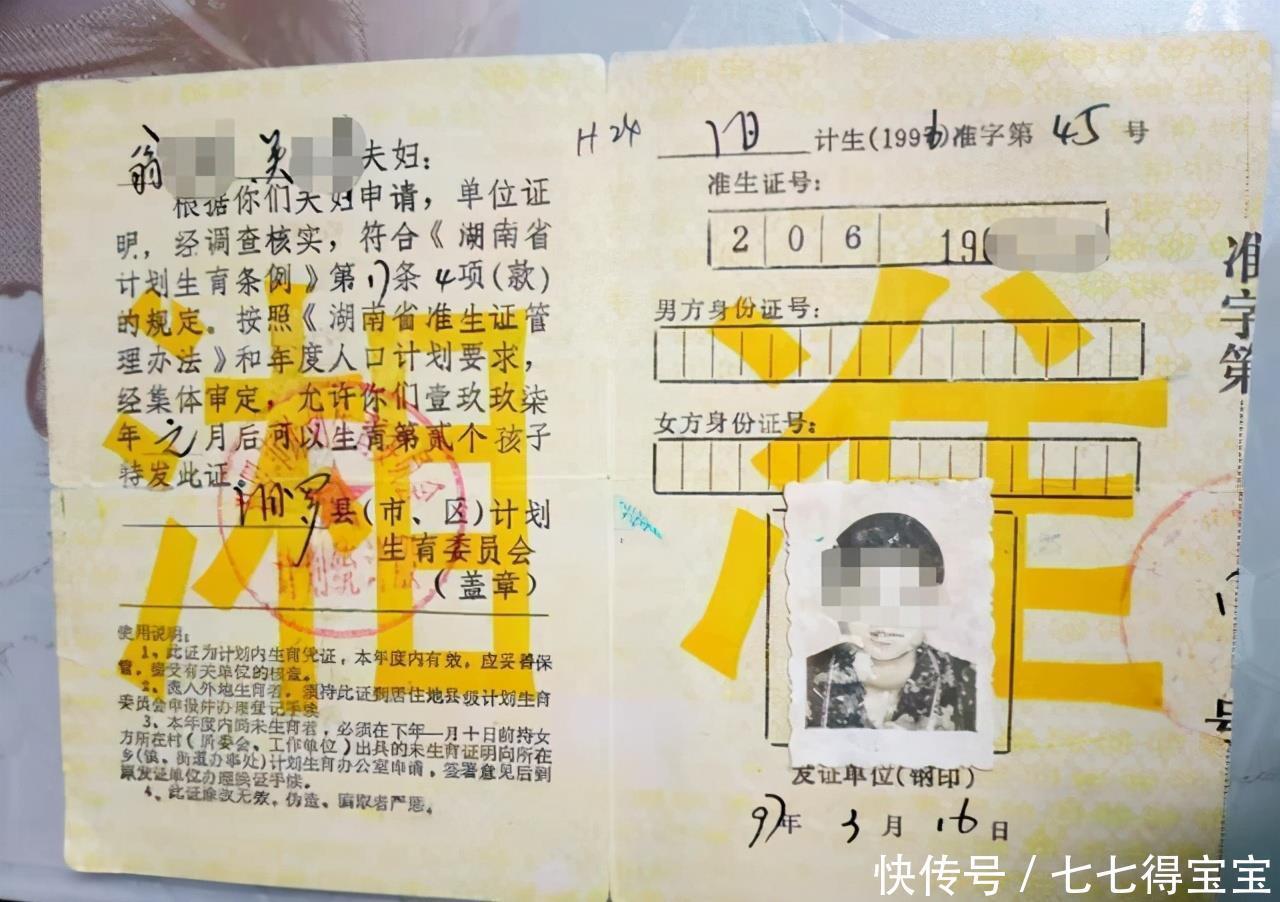 翁 美 夫妇：
根据你们夫妇申请，单位证
明，经调查核实，符合《湖南省
计划生育条例》第17条4项(款)
的规定。按照《湖南省准生证管
理办法》和年度人口计划要求，
经集体审定，允许你们壹玖玖柒
年元月后可以生育第贰个孩子
特发此证
汨罗县(市、区)计划
生育委员会
(盖章)
使用说明：
1、此证为计划内生育凭证，本年度内有效。应妥善保
管，接受有关单位的核查。
2、流入外地生育者，须持此证到居住地县级计划生育
委员会申报并办理登记手续
3、本年度内尚未生育者，必须在下年一月十日前持女
方所在村(居委会、工作单位)出具的未生育证明向所在
乡(镇、街道办事处)计划生育办公室申请，签署意见后到
原发证单位办理换证手续。
4、此证涂改无效，伪造、骗取者严惩。
H 24
汨 计生(1996)准字第 45 号
准生证号：
2 0 6 19
男方身份证号：
女方身份证号：
湘 准
发证单位(钢印)
97年 3月 16日
准字第
号
快传号 / 七七得宝宝